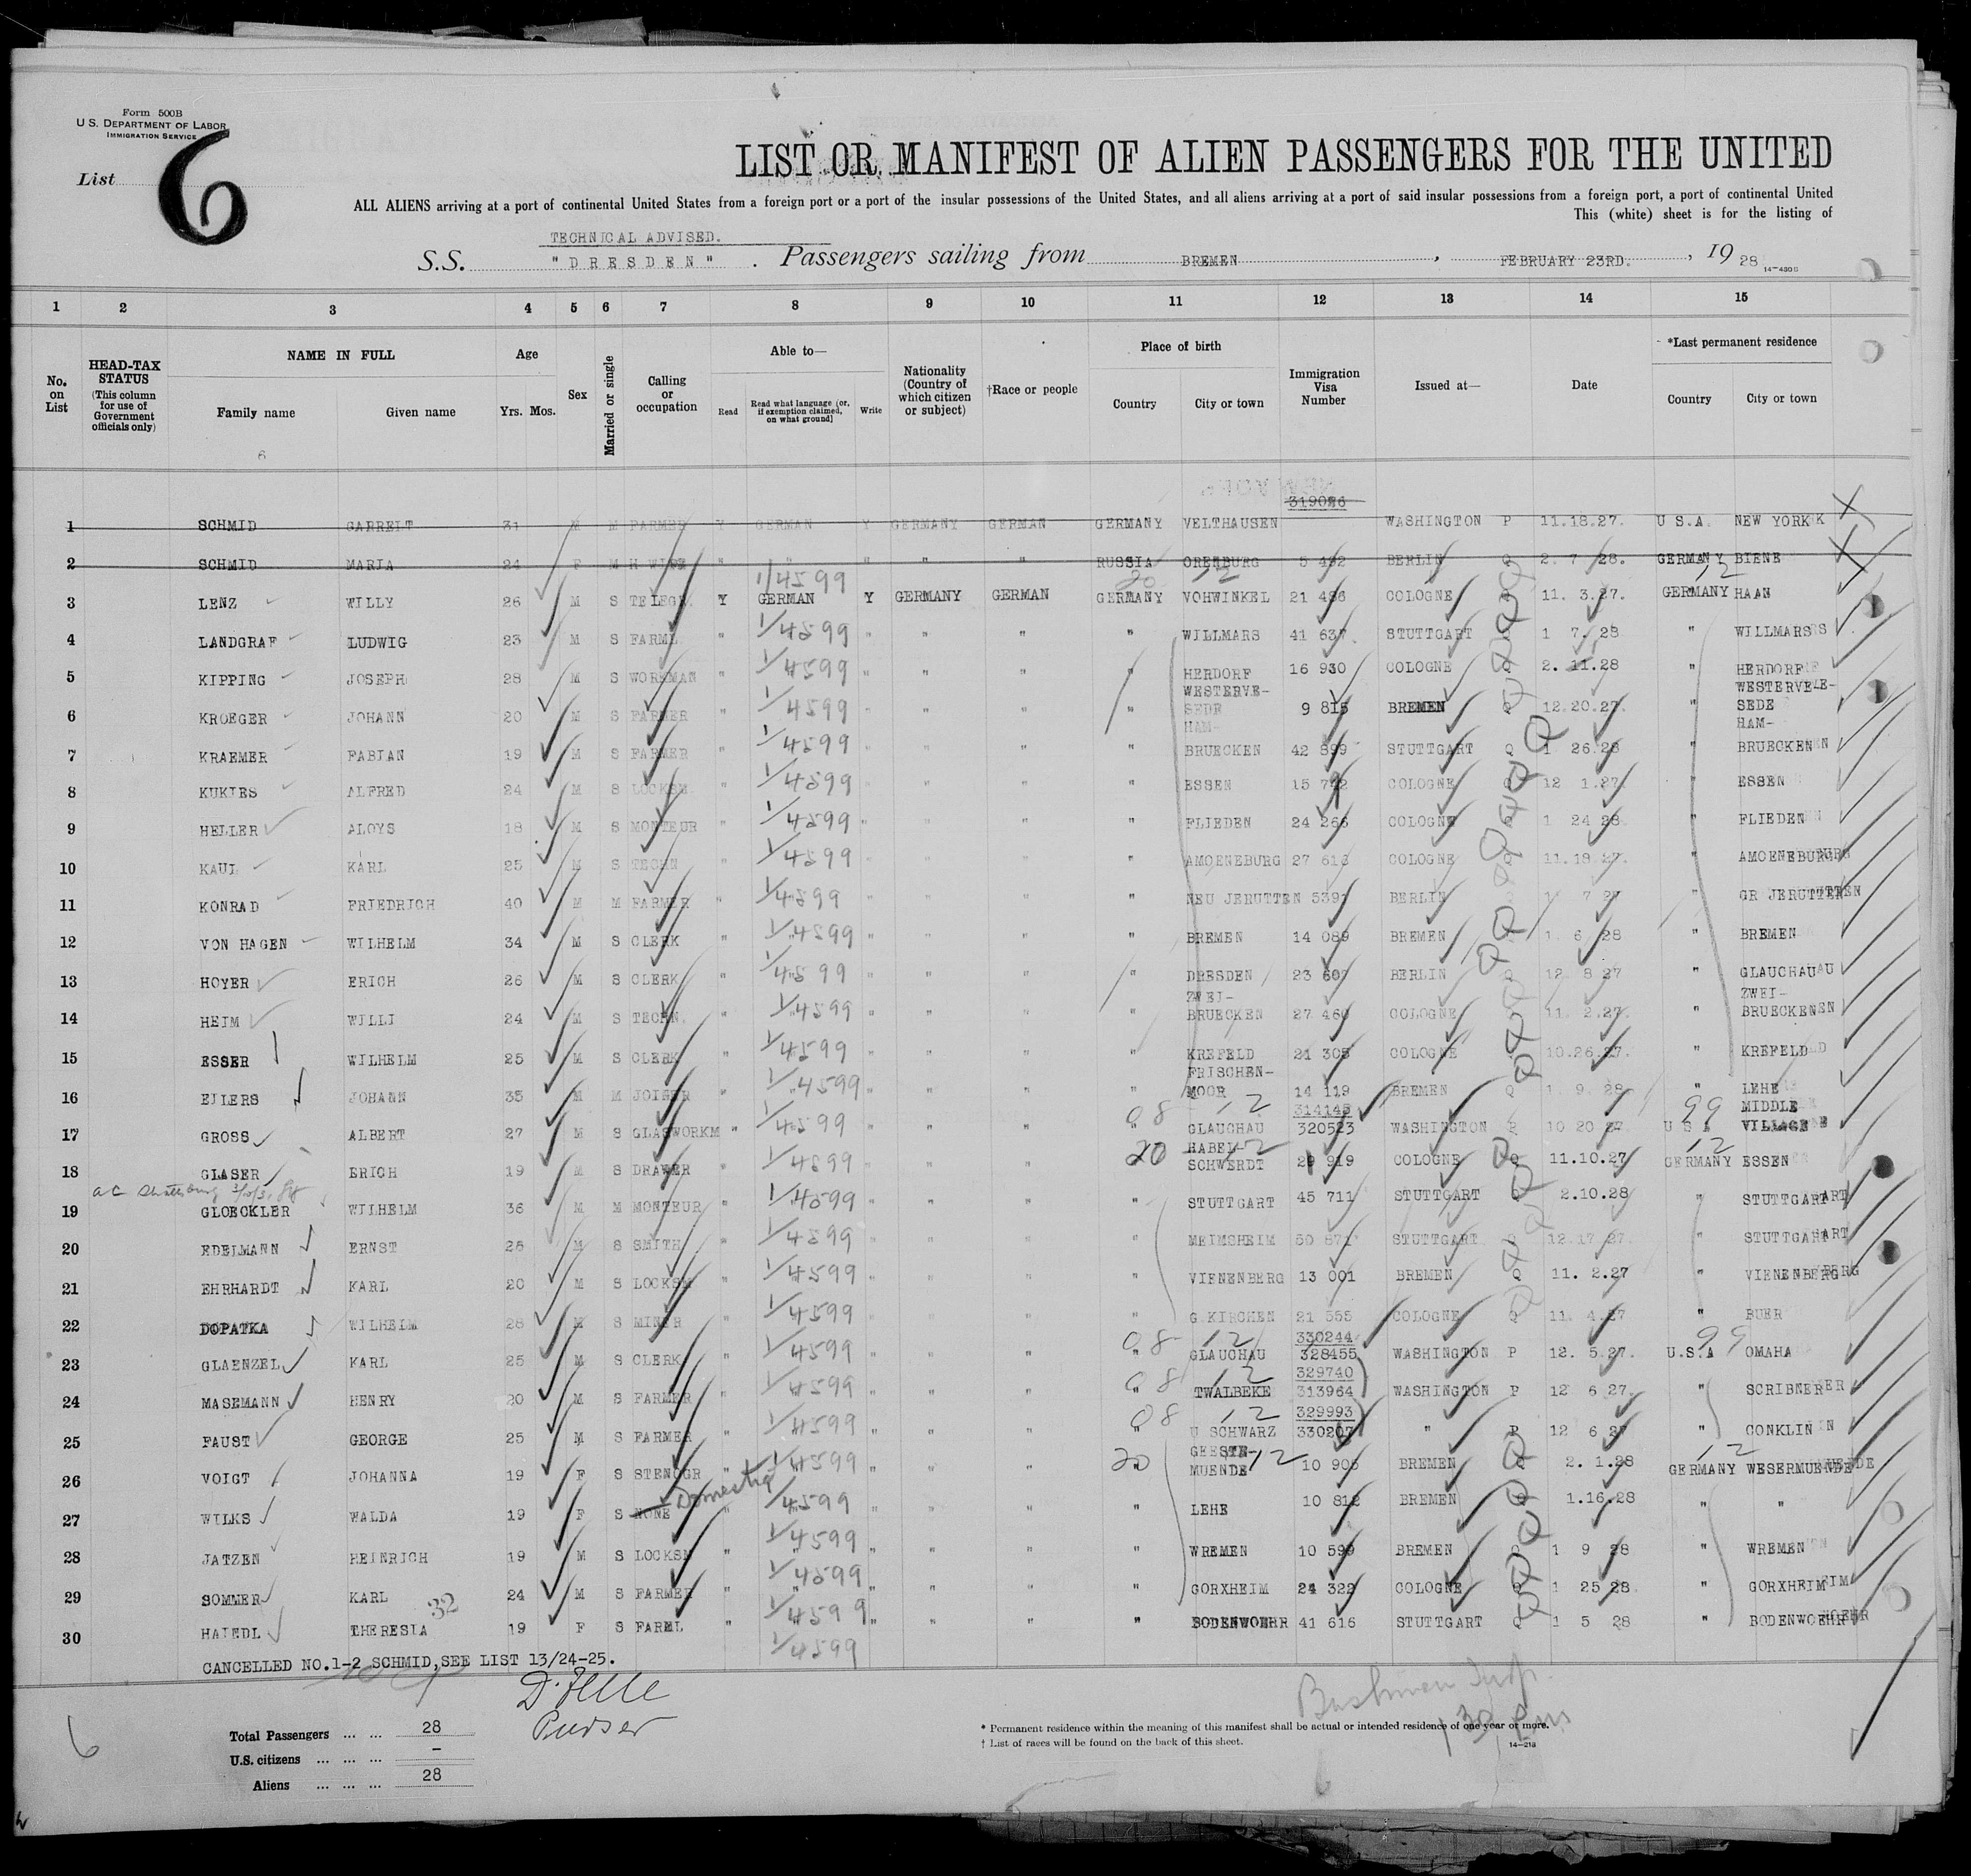 Form 500B
U.S. DEPARTMENT OF LABOR
IMMIGRATION SERVICE
List 6
LIST OR MANIFEST OF ALIEN PASSENGERS FOR THE UNITED
ALL ALIENS arriving at a port of continental United States from a foreign port or a port of the insular possessions of the United States, and all aliens arriving at a port of said insular possessions from a foreign port, a port of continental United
This (white) sheet is for the listing of
TECHNICAL ADVISED.
S.S. "DRESDEN". Passengers sailing from BREMEN, FEBRUARY 23RD., 1928
1 2 3 4 5 6 7 8 9 10 11 12 13 14 15
No. on List
HEAD-TAX STATUS (This column for use of Government officials only)
NAME IN FULL
Family name Given name
Age
Yrs. Mos.
Sex
Married or single
Calling or occupation
Able to—
Read
Read what language (or, if exemption claimed, on what ground)
Write
Nationality (Country of which citizen or subject)
†Race or people
Place of birth
Country City or town
Immigration Visa Number
Issued at—
Date
*Last permanent residence
Country City or town
1 SCHMID GARRELT 31 M M FARMER Y GERMAN Y GERMANY GERMAN GERMANY VELTHAUSEN WASHINGTON P 11.18.27. U S.A. NEW YORK
2 SCHMID MARIA 24 F M H WIFE " " " " " RUSSIA ORENBURG 5 492 BERLIN Q 2. 7 28. GERMANY BIENE
3 LENZ WILLY 26 M S TELEGR. Y GERMAN Y GERMANY GERMAN GERMANY VOHWINKEL 21 486 COLOGNE 11. 3.27. GERMANY HAAN
4 LANDGRAF LUDWIG 23 M S FARML " " " " " WILLMARS 41 637 STUTTGART 1 7. 28 " WILLMARS
5 KIPPING JOSEPH 28 M S WORKMAN " " " " " HERDORF 16 930 COLOGNE 2. 11.28 " HERDORF
6 KROEGER JOHANN 20 M S FARMER " " " " " WESTERVE-SEDE 9 815 BREMEN 12.20.27. " WESTERVE-SEDE
7 KRAEMER FABIAN 19 M S FARMER " " " " " HAM-BRUECKEN 42 899 STUTTGART Q 1 26.28 " HAM-BRUECKEN
8 KUKIES ALFRED 24 M S LOCKSM. " " " " " ESSEN 15 742 COLOGNE 12 1.27. " ESSEN
9 HELLER ALOYS 18 M S MONTEUR " " " " " FLIEDEN 24 266 COLOGNE 1 24 28 " FLIEDEN
10 KAUL KARL 25 M S TECHN " " " " " AMOENEBURG 27 616 COLOGNE 11.18.27. " AMOENEBURG
11 KONRAD FRIEDRICH 40 M M FARMER " " " " " NEU JERUTTEN BERLIN " GR JERUTTEN
12 VON HAGEN WILHELM 34 M S CLERK " " " " " BREMEN 14 089 BREMEN 1. 6. 28 " BREMEN
13 HOYER ERICH 26 M S CLERK " " " " " DRESDEN 23 607 BERLIN 12 8 27 " GLAUCHAU
14 HEIM WILLI 24 M S TECHN. " " " " " ZWEI-BRUECKEN 27 460 COLOGNE 11. 2.27. " ZWEI-BRUECKEN
15 ESSER WILHELM 25 M S CLERK " " " " " KREFELD 21 305 COLOGNE 10.26.27. " KREFELD
16 EILERS JOHANN 35 M M JOINER " " " " " FRISCHEN-MOOR 14 119 BREMEN Q 1. 9. 28 " LEHE
17 GROSS ALBERT 27 M S GLASWORKM " " GLAUCHAU 314145 320523 WASHINGTON P 10 20 27 U S A MIDDLE VILLAGE
18 GLASER ERICH 19 M S DRAWER " " " " HABEL-SCHWERDT 29 919 COLOGNE Q 11.10.27 GERMANY ESSEN
19 GLOECKLER WILHELM 36 M M MONTEUR " " " " " STUTTGART 45 711 STUTTGART 2.10.28 " STUTTGART
20 EDELMANN ERNST 25 M S SMITH " " " " " MEIMSHEIM 50 871 STUTTGART 12.17 27. " STUTTGART
21 EHRHARDT KARL 20 M S LOCKSM " " " " " VIENENBERG 13 001 BREMEN Q 11. 2.27 " VIENENBERG
22 DOPATKA WILHELM 28 M S MINER " " " " " G.KIRCHEN 21 555 COLOGNE Q 11. 4.27 " BUER
23 GLAENZEL KARL 25 M S CLERK " " " " " GLAUCHAU 330244 328455 WASHINGTON P 12. 5.27. U.S.A OMAHA
24 MASEMANN HENRY 20 M S FARMER " " " " " TWALBEKE 329740 313964 WASHINGTON P 12 6 27. " SCRIBNER
25 FAUST GEORGE 25 M S FARMER " " " " " U SCHWARZ 329993 330207 " P 12 6 27 " CONKLIN
26 VOIGT JOHANNA 19 F S STENOGR " " " " " GEESTE-MUENDE 10 905 BREMEN 2. 1.28 GERMANY WESERMUENDE
27 WILKS WALDA 19 F S NONE Domestic " " " " " LEHE 10 812 BREMEN 1.16.28 " "
28 JATZEN HEINRICH 19 M S LOCKSM " " " " " WREMEN 10 599 BREMEN 1 9 28 " WREMEN
29 SOMMER KARL 24 M S FARMER " " " " " GORXHEIM 24 322 COLOGNE 1 25 28 " GORXHEIM
30 HAIEDL THERESIA 19 F S FARML " " " " " BODENWOEHR 41 616 STUTTGART Q 1 5 28 " BODENWOEHR
32
CANCELLED NO.1-2 SCHMID,SEE LIST 13/24-25.
Purser
6
Total Passengers ... ... 28
U.S. citizens ... ... ... –
Aliens ... ... ... 28
* Permanent residence within the meaning of this manifest shall be actual or intended residence of one year or more.
† List of races will be found on the back of this sheet.
14—218